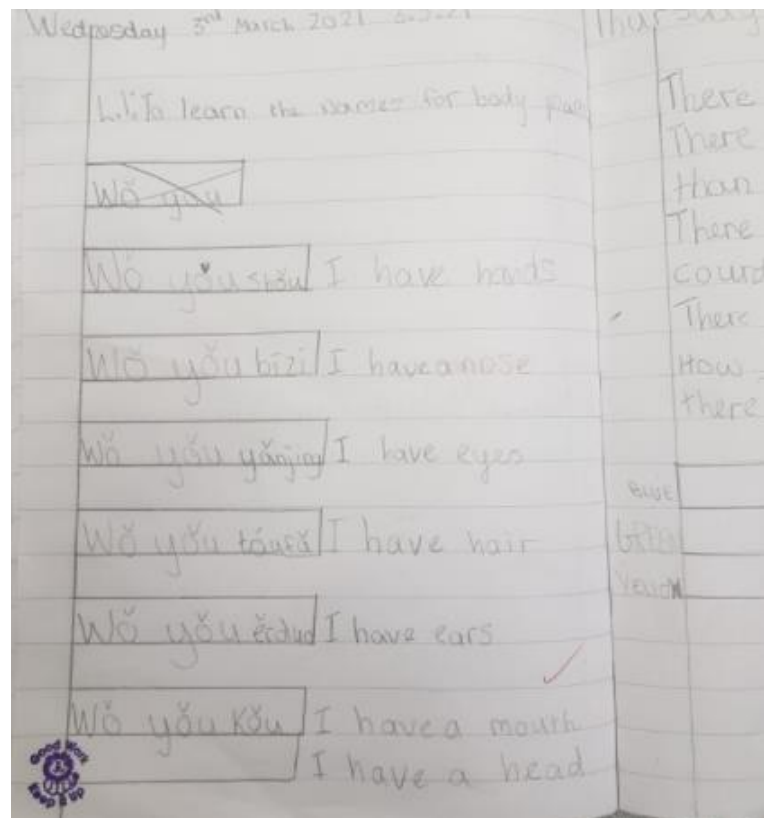 Wednesday 3rd March 2021 3.3.21
L.I. To learn the names for body
Wǒ yǒu
Wǒ yǒu shǒu I have hands
Wǒ yǒu bízi I have a nose
Wǒ yǒu yǎnjing I have eyes
Wǒ yǒu tóufǎ I have hair
Wǒ yǒu ěrduo I have ears
Wǒ yǒu Kǒu I have a mouth
I have a head
Good Work
Keep it up
Thursday
There
There
than
There
There
How
there
BLUE
Green
Yellow